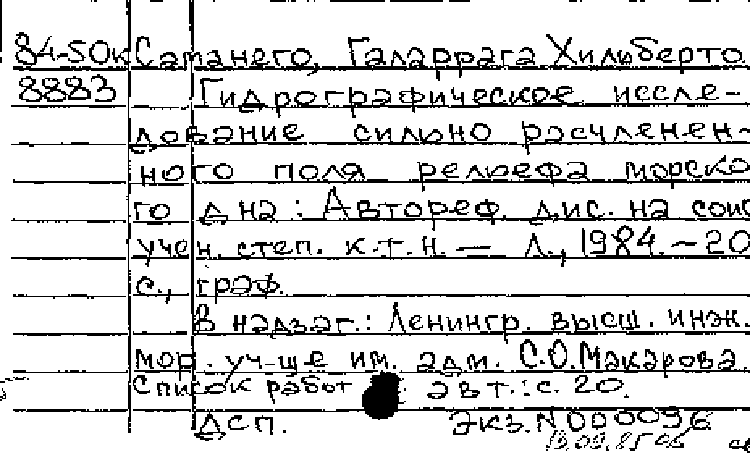 84-50к Сапанего, Галаррага Хильберто
8883 Гидрографическое иссле-
дование сильно расчленен-
ного поля рельефа морско
го дна : Автореф. дис. на соис
учен. степ. к.т.н. — Л., 1984. - 20
с., граф.
В надзаг.: Ленингр. высш. инж.
мор. уч-ще им. адм. С.О. Макарова.
Список работ авт.: с. 20.
ДСП. Экз. N 000096